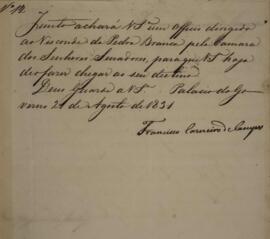 Nº 12.
Junto achará V Sª um officio dirigido
ao Visconde da Pedra Branca pela Camara
dos Senhores Senadores, para que V Sª haja
de o fazer chegar ao seu destino.
Deus Guarde a V Sª Palacio do Go
verno 2 de Agosto de 1831
Francisco Carneiro de Campos